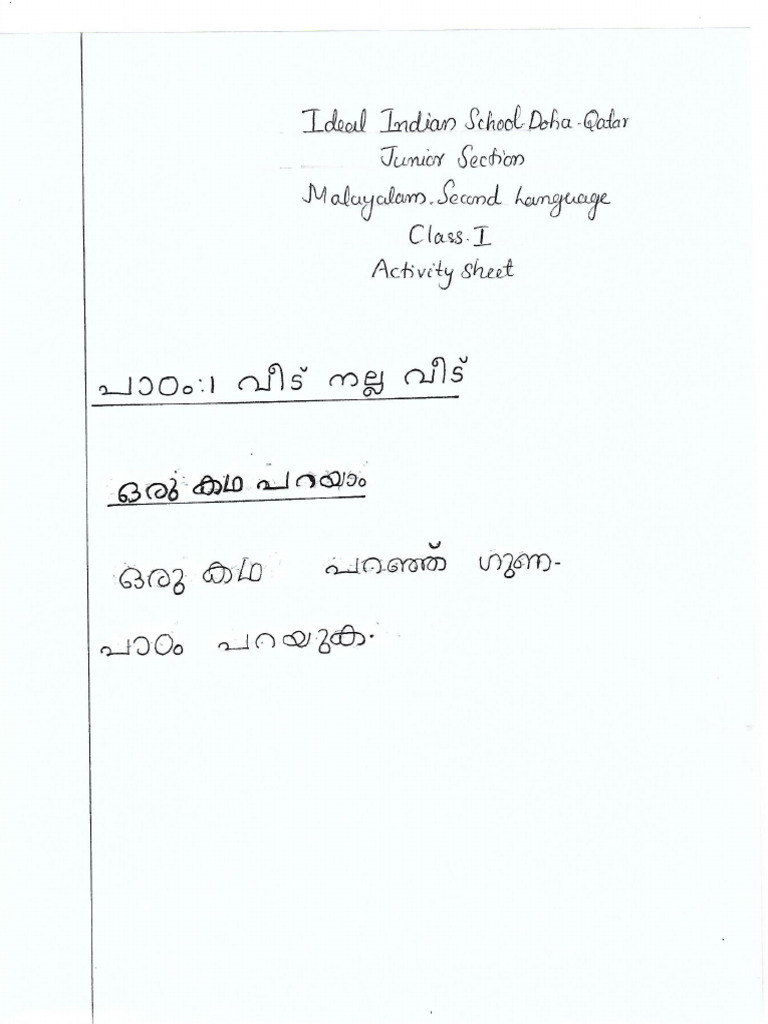 Ideal Indian School. Doha - Qatar
Junior Section
Malayalam. Second Language
Class. I
Activity sheet
പാഠം:1 വീട് നല്ല വീട്
ഒരു കഥ പറയാം
ഒരു കഥ പറഞ്ഞ് ഗുണ-
പാഠം പറയുക.